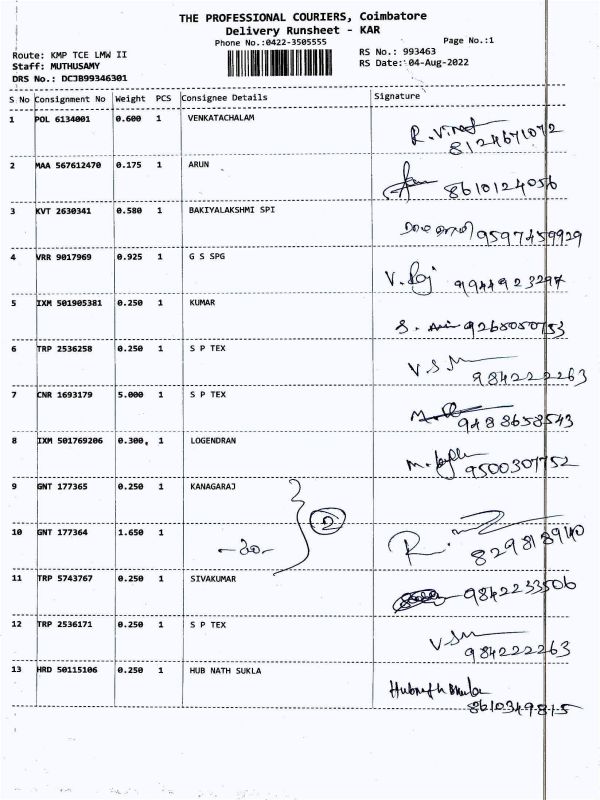 THE PROFESSIONAL COURIERS, Coimbatore
Delivery Runsheet - KAR
Phone No.:0422-3505555
Page No.:1
Route: KMP TCE LMW II
RS No.: 993463
Staff: MUTHUSAMY
RS Date: 04-Aug-2022
DRS No.: DCJB99346301
S No Consignment No Weight PCS Consignee Details Signature
1 POL 6134001 0.600 1 VENKATACHALAM
8124671072
2 MAA 567612470 0.175 1 ARUN
8610124056
3 KVT 2630341 0.580 1 BAKIYALAKSHMI SPI
9597459929
4 VRR 9017969 0.925 1 G S SPG
V. Raj 9944923297
5 IXM 501905381 0.250 1 KUMAR
6 TRP 2536258 0.250 1 S P TEX
984222263
7 CNR 1693179 5.000 1 S P TEX
9488658543
8 IXM 501769206 0.300 1 LOGENDRAN
9500307752
9 GNT 177365 0.250 1 KANAGARAJ
2
10 GNT 177364 1.650 1
8298118940
11 TRP 5743767 0.250 1 SIVAKUMAR
9842233506
12 TRP 2536171 0.250 1 S P TEX
984222263
13 HRD 50115106 0.250 1 HUB NATH SUKLA
8610349815